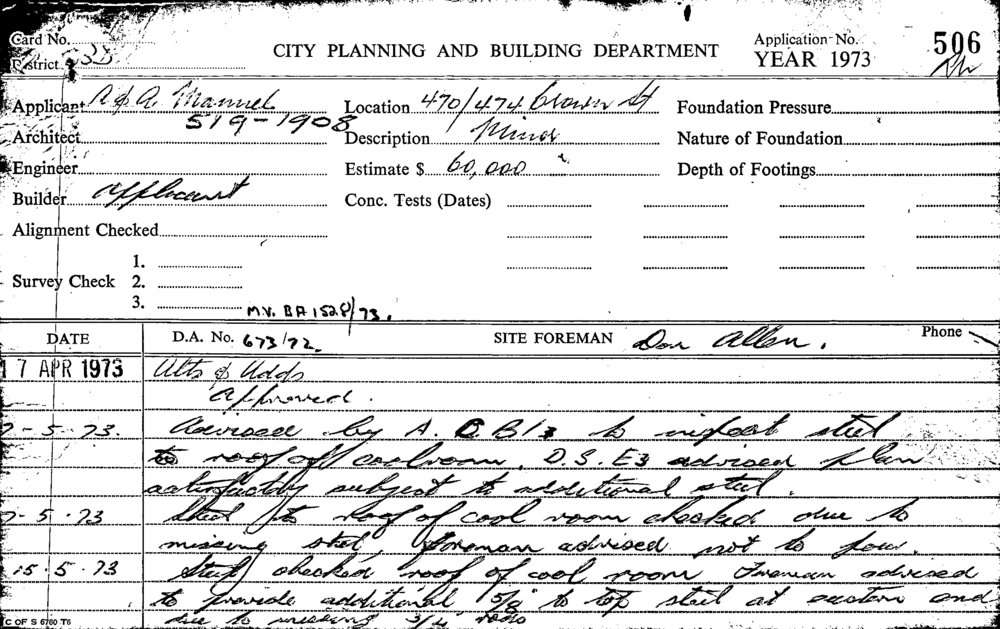 Card No.
CITY PLANNING AND BUILDING DEPARTMENT
Application No. 506
District
YEAR 1973
Applicant R & A. Manuel Location 470/474 Crown St Foundation Pressure
519-1908
Architect Description Minor Nature of Foundation
Engineer Estimate $ 60,000 Depth of Footings
Builder applicant Conc. Tests (Dates)
Alignment Checked
1.
Survey Check 2.
3.
M.V. BA 1528/73.
DATE D.A. No. 673/72. SITE FOREMAN Don Allen. Phone
17 APR 1973 Alts & Adds
Approved.
7-5-73. Advised by A. C. B/3 to inspect steel
to roof off coolroom. D.S.E3 advised plan
satisfactory subject to additional steel.
7-5-73 Steel to roof of cool room checked due to
missing steel, foreman advised not to pour.
15.5.73 Steel checked roof of cool room Foreman advised
to provide additional 5/8" to top steel at eastern end
due to missing 3/4" rods
C OF S 6760 T6